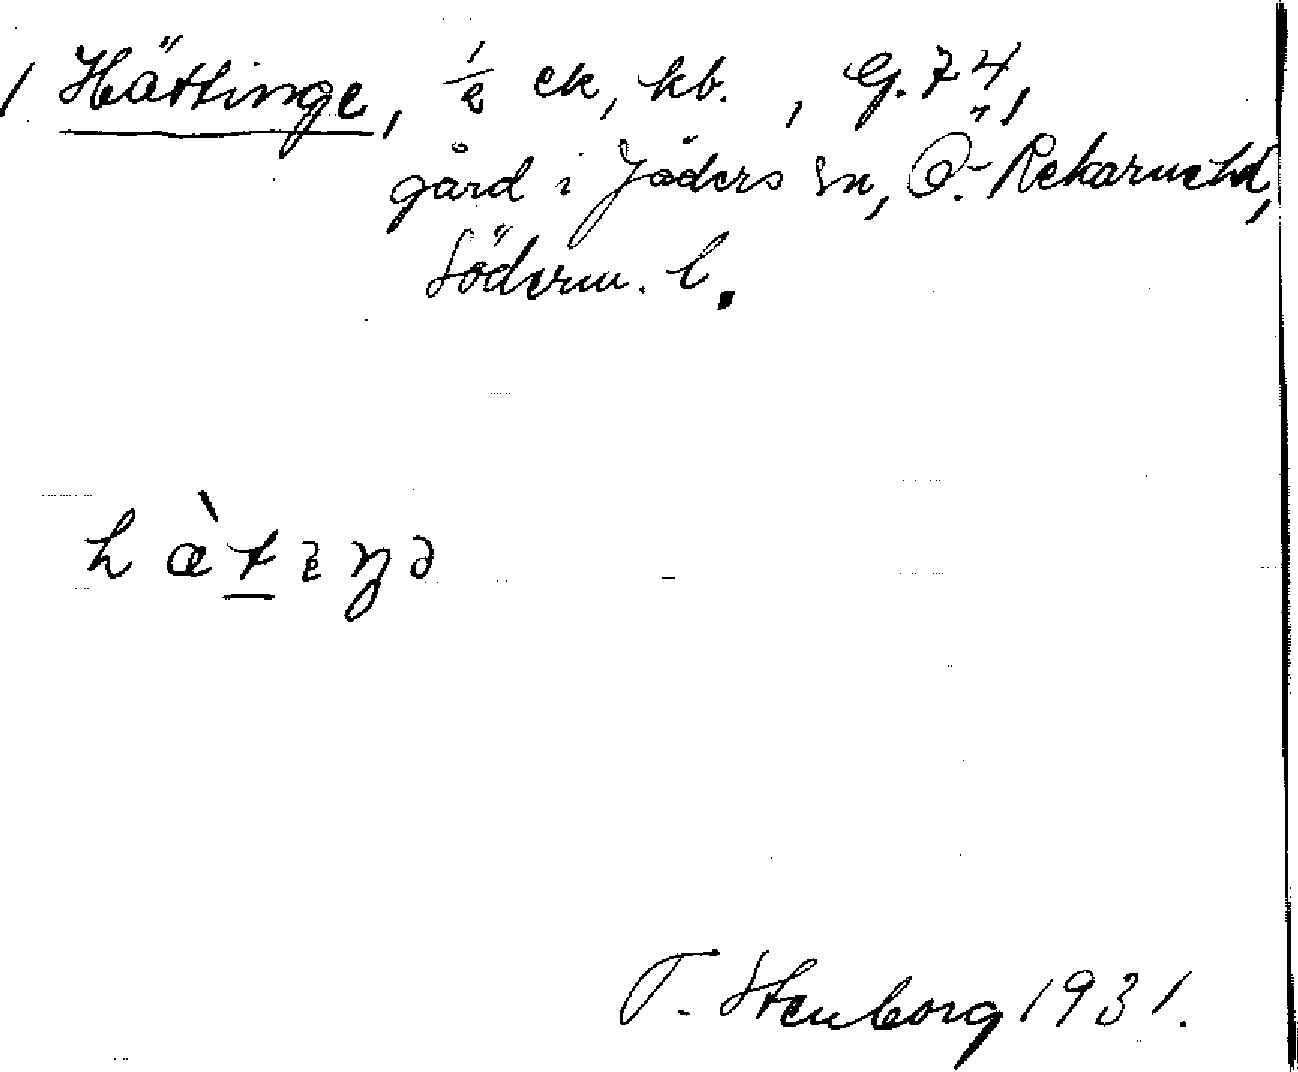 / Hättinge, 1/2 ek, kb. , G. 74,
gård i Jäders sn, Ö.-Rekarnehd,
Söderm. l.
h æ̀ t ɪ ŋ ə
T. Stenborg 1931.